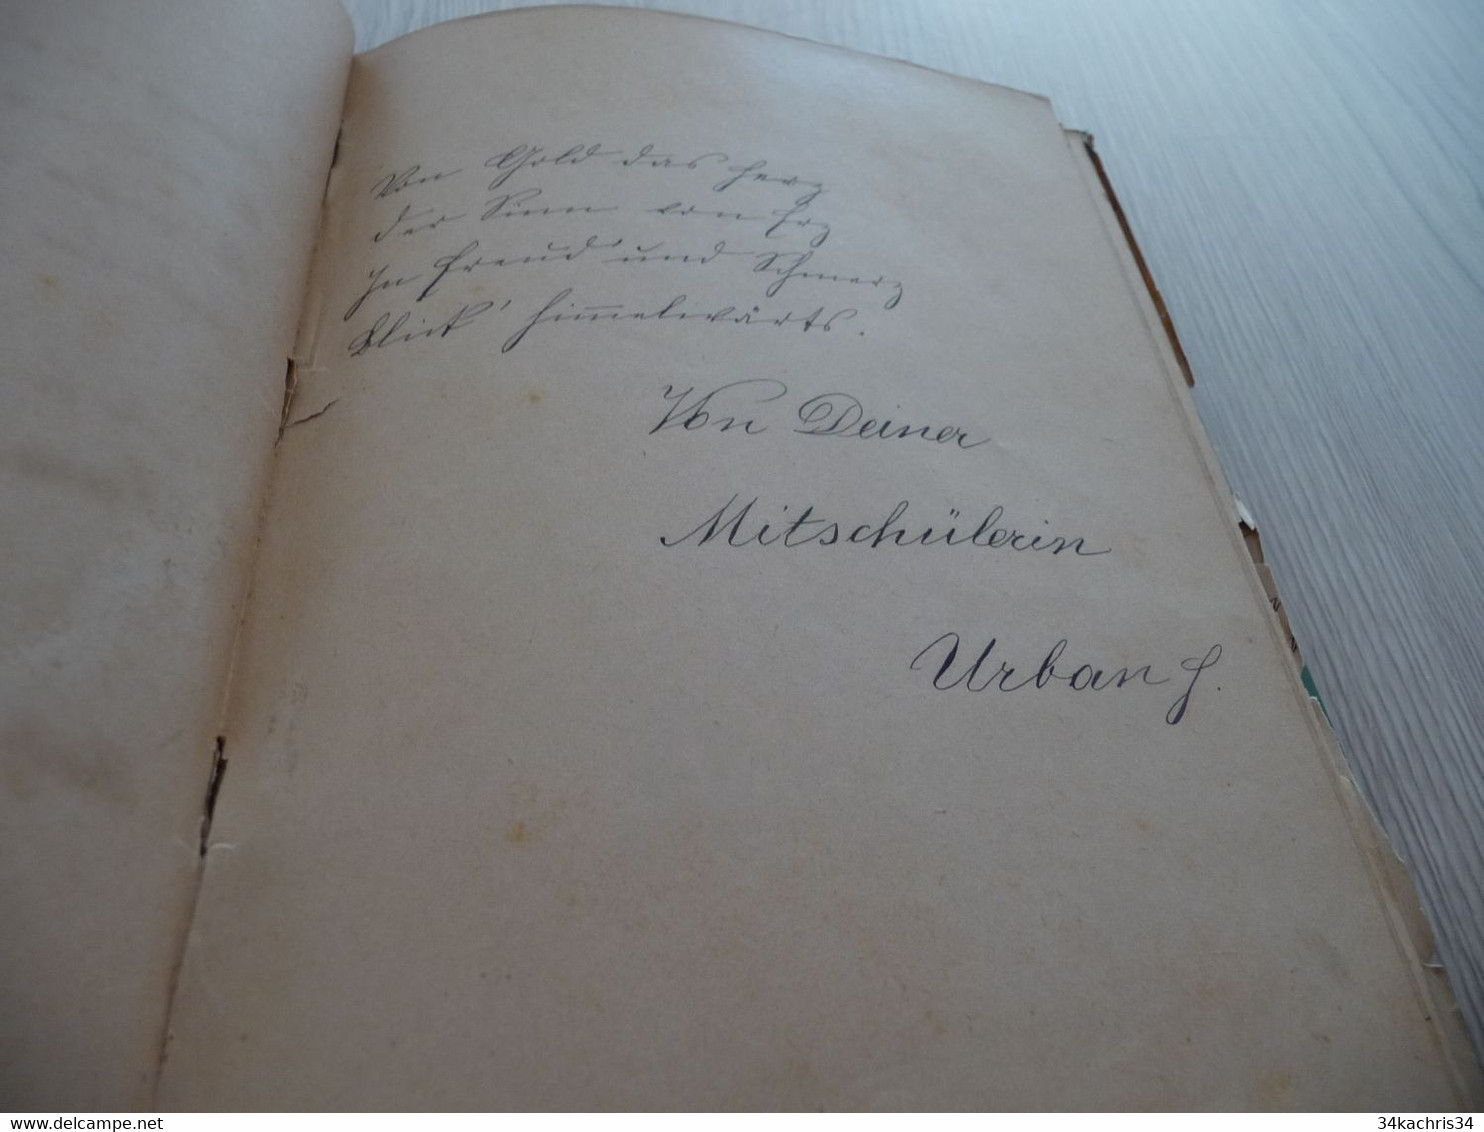 Von Gold das Herz
der Sinn von Erz
In Freud' und Schmerz
Blick' himmelwärts.
Von Deiner
Mitschülerin
Urban J.
34kachris34